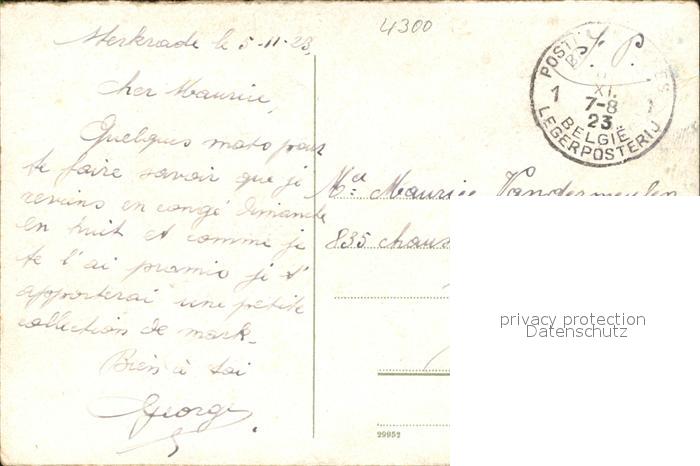 4300
Merkrade le 5-11-23,
Cher Maurice,
Quelques mots pour
te faire savoir que je
reviens en congé Dimanche
en huit et comme je
te l'ai promis je t'
apporterai une petite
collection de mark.
Bien à toi
Georges
S. P.
POSTES
1 XI. 1
7-8
23.
BELGIË
LEGERPOSTERIJ
Mr. Maurice Vandermeulen
835 chaus
privacy protection
Datenschutz
29952